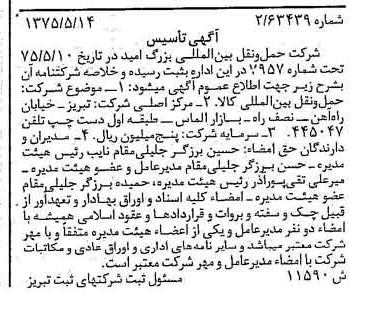 شماره ۲/۶۳۴۳۹ ۱۳۷۵/۵/۱۴
آگهی تأسیس
شرکت حمل‌ونقل بین‌المللی بزرگ امید در تاریخ ۷۵/۵/۱۰
تحت شماره ۷۹۵۷ در این اداره بثبت رسیده و خلاصه شرکتنامه آن
بشرح زیر جهت اطلاع عموم آگهی میشود: ۱ــ موضوع شرکت:
حمل‌ونقل بین‌المللی کالا. ۲ــ مرکز اصلی شرکت: تبریز ــ خیابان
راه‌آهن ــ نصف راه ــ بازار الماس ــ طبقه اول دست چپ تلفن
۴۴۵۰۴۷. ۳ــ سرمایه شرکت: پنج‌میلیون ریال. ۴ــ مدیران و
دارندگان حق امضاء: حسین برزگر جلیلی‌مقام نایب رئیس هیئت
مدیره ــ حسن برزگر جلیلی‌مقام مدیرعامل و عضو هیئت مدیره ــ
میرعلی تقی‌پورآذر رئیس هیئت مدیره، حمیده برزگر جلیلی‌مقام
عضو هیئت مدیره ــ امضاء کلیه اسناد و اوراق بهادار و تعهدآور از
قبیل چک و سفته و بروات و قراردادها و عقود اسلامی همیشه با
امضاء دو نفر مدیرعامل و یکی از اعضاء هیئت مدیره متفقاً و با مهر
شرکت معتبر میباشد و سایر نامه‌های اداری و اوراق عادی و مکاتبات
شرکت با امضاء مدیرعامل و مهر شرکت معتبر است.
ش ۱۱۵۹۰ مسئول ثبت شرکتهای ثبت تبریز